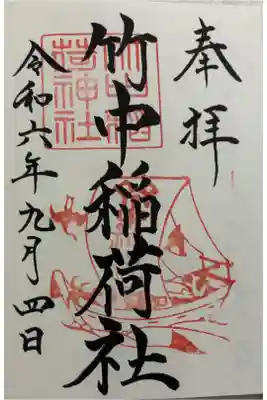 奉拝
竹中稲荷社
令和六年九月四日
竹中稲
荷神社